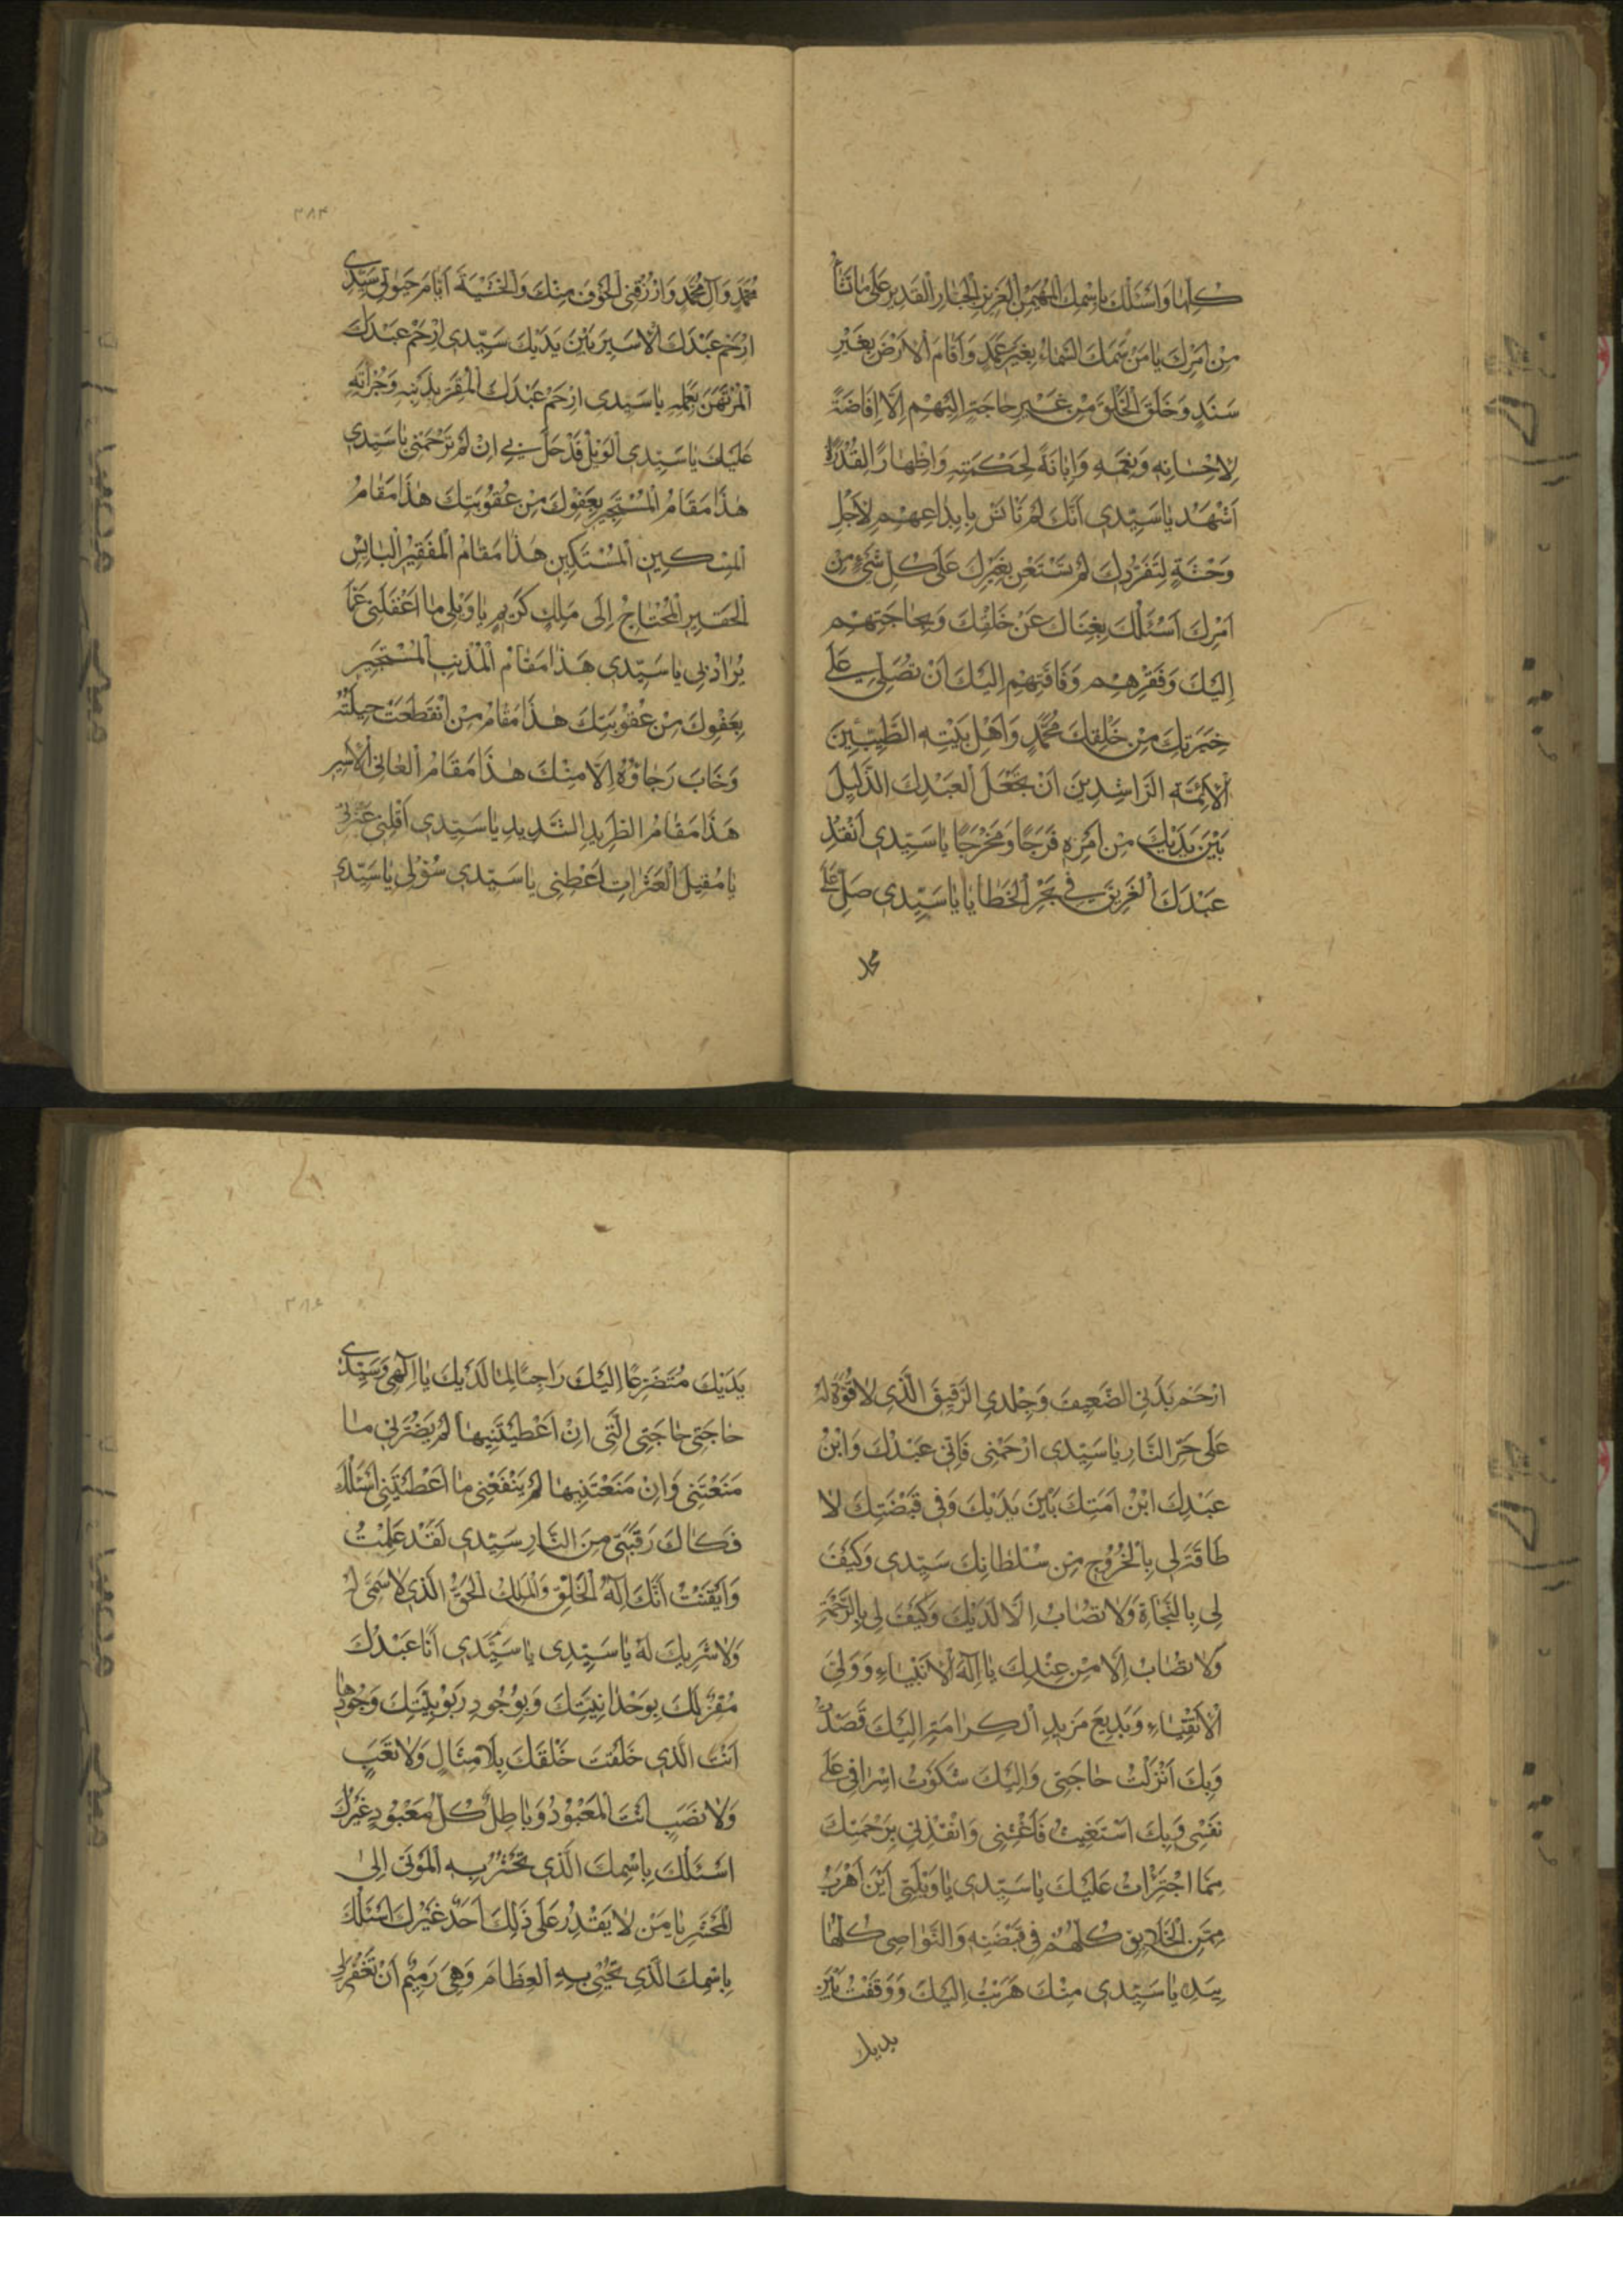 كلها واسئلك باسمك المهيمن العزيز الجبار القدير على ما تشاء
مِن اَمرِك يا مَن سَمَكَ السَّماءَ بِغَيرِ عَمَدٍ وَاَقامَ الاَرضَ بِغَيْرِ
سَنَدٍ وَخَلَقَ الْخَلْقَ مِن غَيرِ حاجَةٍ اِلَيهِم اِلّا اِفاضَةً
لِاِحسانِهِ وَنِعَمِهِ وَاِبانَةً لِحِكمَتِهِ وَاِظهارًا لِقُدرَتِهِ
اَشهَدُ يا سَيِّدي اَنَّكَ لَم تَأنَس بِابِداعِهِم لِاَجلِ
وَحشَةٍ لِتَفَرُّدِكَ لَم تَستَعِن بِغَيرِكَ عَلى كُلِّ شَيءٍ مِن
اَمرِكَ اَسئَلُكَ بِغِناكَ عَن خَلقِكَ وَبِحاجَتِهِم
اِلَيكَ وَفَقرِهِم وَفاقَتِهِم اِلَيكَ اَن تُصَلِّيَ عَلى
خِيَرَتِكَ مِن خَلقِكَ مُحَمَّدٍ وَاَهلِ بَيتِهِ الطَّيِّبينَ
الاَئِمَّةِ الرّاشِدينَ اَن تَجعَلَ العَبدِكَ الذَّليلِ
بَينَ يَدَيكَ مِن اَمرِهِ فَرَجًا وَمَخرَجًا يا سَيِّدي اَنقِذ
عَبدَكَ الغَريقَ في بَحرِ الخَطايا يا سَيِّدي صَلِّ عَلى
محمد
٣٨٤
مُحَمَّدٍ وَآلِ مُحَمَّدٍ وَارزُقنِي الخَوفَ مِنكَ وَالخَشيَةَ اَيّامَ حَيوتي سَيِّدي
اِرحَم عَبدَكَ الاَسيرَ بَينَ يَدَيكَ سَيِّدي اِرحَم عَبدَكَ
المُرتَهَنَ بِعَمَلِهِ يا سَيِّدي اِرحَم عَبدَكَ المُقِرَّ بِذَنبِهِ وَجُرأَتِهِ
عَلَيكَ يا سَيِّدي الوَيلُ قَد حَلَّ بي اِن لَم تَرحَمني يا سَيِّدي
هٰذا مَقامُ المُستَجيرِ بِعَفوِكَ مِن عُقوبَتِكَ هٰذا مَقامُ
المِسكينِ المُستَكينِ هٰذا مَقامُ الفَقيرِ البائِسِ
الحَقيرِ المُحتاجِ اِلى مَلِكٍ كَريمٍ يا وَيلي ما اَغفَلَني عَمّا
يُرادُ بي يا سَيِّدي هٰذا مَقامُ المُذنِبِ المُستَجيرِ
بِعَفوِكَ مِن عُقوبَتِكَ هٰذا مَقامُ مَنِ انقَطَعَت حيلَتُهُ
وَخابَ رَجاؤُهُ اِلّا مِنكَ هٰذا مَقامُ العاني الاَسيرِ
هٰذا مَقامُ الطَّريدِ الشَّديدِ يا سَيِّدي اَقِلني عَثرَتي
يا مُقيلَ العَثَراتِ اَعطِني يا سَيِّدي سُؤلي يا سَيِّدي
اِرحَم بَدَنِي الضَّعيفَ وَجِلدِي الرَّقيقَ الَّذي لا قُوَّةَ لَهُ
عَلى حَرِّ النّارِ يا سَيِّدي اِرحَمني فَاِنّي عَبدُكَ وَابنُ
عَبدِكَ ابنُ اَمَتِكَ بَينَ يَدَيكَ وَفي قَبضَتِكَ لا
طاقَةَ لي بِالخُروجِ مِن سُلطانِكَ سَيِّدي وَكَيفَ
لي بِالنَّجاةِ وَلا تُصابُ اِلّا لَدَيكَ وَكَيفَ لي بِالرَّحمَةِ
وَلا تُصابُ اِلّا مِن عِندِكَ يا اِلٰهَ الاَنبِياءِ وَوَلِيَّ
الاَتقِياءِ وَبَديعَ مَزيدِ الكَرامَةِ اِلَيكَ قَصَدتُ
وَبِكَ اَنزَلتُ حاجَتي وَاِلَيكَ شَكَوتُ اِسرافي عَلى
نَفسي وَبِكَ اَستَغيثُ فَاَغِثني وَانقِذني بِرَحمَتِكَ
مِمَّا اجتَرَأتُ عَلَيكَ يا سَيِّدي يا وَيلَتي اَينَ اَهرَبُ
مِمَّنِ الخَلايِقُ كُلُّهُم في قَبضَتِهِ وَالنَّواصي كُلُّها
بِيَدِهِ يا سَيِّدي مِنكَ هَرَبتُ اِلَيكَ وَوَقَفتُ بَينَ
يديك
٣٨٥
يَدَيكَ مُتَضَرِّعًا اِلَيكَ راجِيًا لِما لَدَيكَ يا اِلٰهي وَسَيِّدي
حاجَتي حاجَتي الَّتي اِن اَعطَيتَنيها لَم يَضُرَّني ما
مَنَعتَني وَاِن مَنَعتَنيها لَم يَنفَعني ما اَعطَيتَني اَسئَلُكَ
فَكاكَ رَقَبَتي مِنَ النّارِ سَيِّدي لَقَد عَلِمتُ
وَاَيقَنتُ اَنَّكَ اِلٰهُ الخَلقِ وَالمَلِكُ الحَقُّ الَّذي لا سَمِيَّ لَهُ
وَلا شَريكَ لَهُ يا سَيِّدي يا سَيِّدي اَنَا عَبدُكَ
مُقِرٌّ لَكَ بِوَحدانِيَّتِكَ وَبِوُجودِ رُبوبِيَّتِكَ وَجُودِها
اَنتَ الَّذي خَلَقتَ خَلقَكَ بِلا مِثالٍ وَلا تَعَبٍ
وَلا نَصَبٍ اَنتَ المَعبودُ وَباطِلٌ كُلُّ مَعبودٍ غَيرُكَ
اَسئَلُكَ بِاسمِكَ الَّذي تَحشُرُ بِهِ المَوتى اِلى
المَحشَرِ يا مَن لا يَقدِرُ عَلى ذٰلِكَ اَحَدٌ غَيرُكَ اَسئَلُكَ
بِاسمِكَ الَّذي تُحيي بِهِ العِظامَ وَهِيَ رَميمٌ اَن تَغفِرَ لي